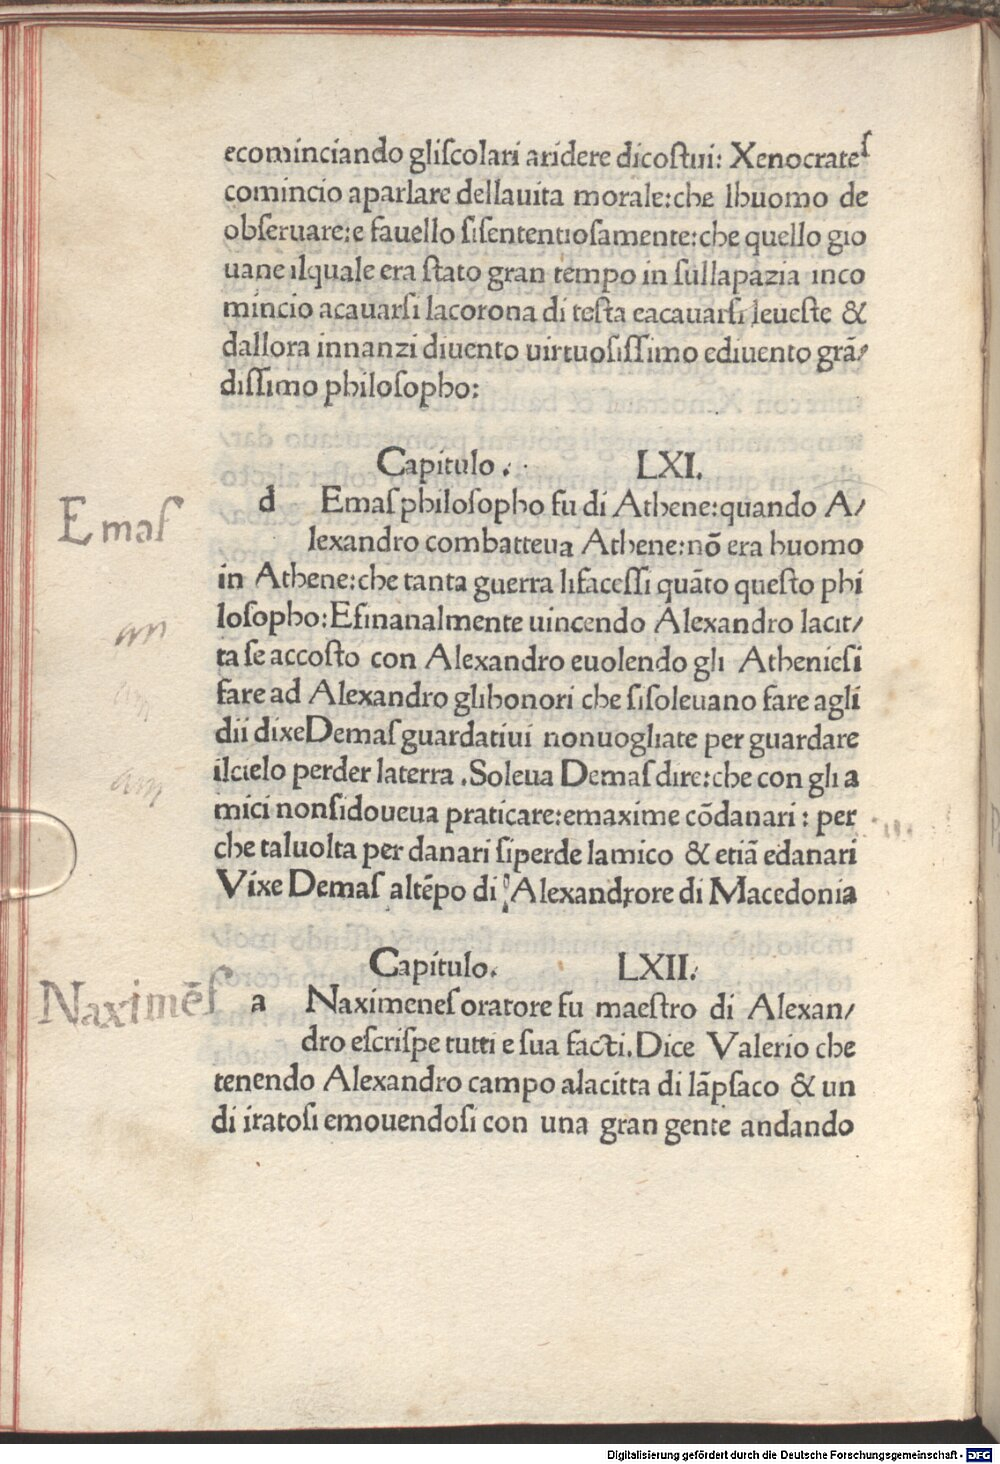 ecominciando gliſcolari aridere dicoſtui: Xenocrateſ
comincio aparlare dellauita morale:che lhuomo de
obſeruare:e fauello ſiſententioſamente:che quello gio
uane ilquale era ſtato gran tempo in ſullapazia inco
mincio acauarſi lacorona di teſta eacauarſi leueſte &
dallora innanzi diuento uirtuoſiſſimo ediuento grã/
diſſimo philoſopho:
Capitulo . LXI.
d Emaſ philoſopho fu di Athene:quando A/
lexandro combatteua Athene:nõ era huomo
in Athene:che tanta guerra lifaceſſi quãto queſto phi
loſopho:Efinanalmente uincendo Alexandro lacit/
ta ſe accoſto con Alexandro euolendo gli Athenieſi
fare ad Alexandro glihonori che ſiſoleuano fare agli
dii dixeDemaſ guardatiui nonuogliate per guardare
ilcielo perder laterra .Soleua Demaſ dire:che con gli a
mici nonſidoueua praticare:emaxime cõdanari : per
che taluolta per danari ſiperde lamico & etiã edanari
Vixe Demaſ altẽpo di Alexandrore di Macedonia
Capitulo. LXII.
a Naximeneſ oratore fu maeſtro di Alexan/
dro eſcriſpe tutti e ſua facti.Dice Valerio che
tenendo Alexandro campo alacitta di lãpſaco & un
di iratoſi emouendoſi con una gran gente andando
Emaſ
an
am
am
Naximẽſ
Digitalisierung gefördert durch die Deutsche Forschungsgemeinschaft - DFG